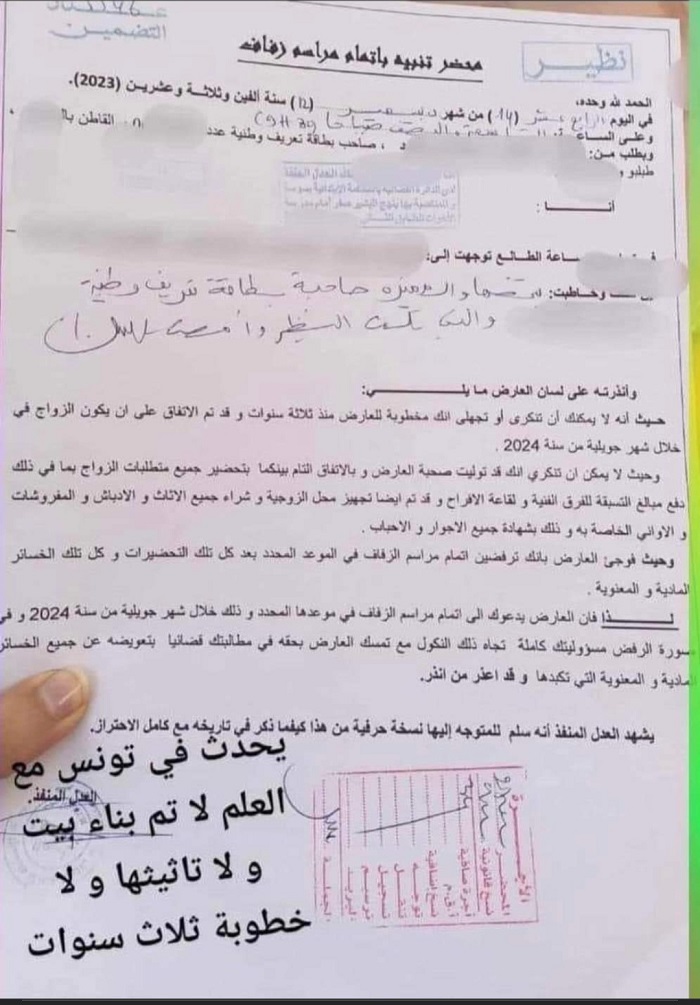 نظير
التضمين
محضر تنبيه باتمام مراسم زفاف
الحمد لله وحده،
في اليوم الرابع عشر (14) من شهر ديسمبر (12) سنة ألفين وثلاثة وعشرين (2023).
وعلى الساعة التاسعة والنصف صباحا (9H30)
وبطلب من: ، صاحب بطاقة تعريف وطنية عدد القاطن
طبلبو و
أنـــــا :
ـاعة الطالع توجهت إلى:
وخاطبت: صاحبة بطاقة تعريف وطنية
النظير
وأنذرته على لسان العارض ما يلـــــي:
حيث أنه لا يمكنك أن تنكرى أو تجهلى انك مخطوبة للعارض منذ ثلاثة سنوات و قد تم الاتفاق على ان يكون الزواج في
خلال شهر جويلية من سنة 2024 .
وحيث لا يمكن ان تنكري انك قد توليت صحبة العارض و بالاتفاق التام بينكما بتحضير جميع متطلبات الزواج بما في ذلك
دفع مبالغ التسبقة للفرق الفنية و لقاعة الافراح و قد تم ايضا تجهيز محل الزوجية و شراء جميع الاثاث و الادباش و المفروشات
و الاواني الخاصة به و ذلك بشهادة جميع الاجوار و الاحباب .
وحيث فوجئ العارض بانك ترفضين اتمام مراسم الزفاف في الموعد المحدد بعد كل تلك التحضيرات و كل تلك الخسائر
المادية و المعنوية .
لـــــذا فان العارض يدعوك الى اتمام مراسم الزفاف في موعدها المحدد و ذلك خلال شهر جويلية من سنة 2024 و في
صورة الرفض مسؤوليتك كاملة تجاه ذلك النكول مع تمسك العارض بحقه في مطالبتك قضائيا بتعويضه عن جميع الخسائر
المادية و المعنوية التي تكبدها و قد اعذر من انذر.
يشهد العدل المنفذ أنه سلم للمتوجه إليها نسخة حرفية من هذا كيفما ذكر في تاريخه مع كامل الاحتراز.
العدل المنفذ.
يحدث في تونس مع
العلم لا تم بناء بيت
و لا تاثيثها و لا
خطوبة ثلاث سنوات
الأجـــرة
المحضر
نسخ قانونية
أجرة صافية
أ.ق.م
نسخ إضافية
توجه
تنقل
تسجيل
ترسيم
البريد
الجملة